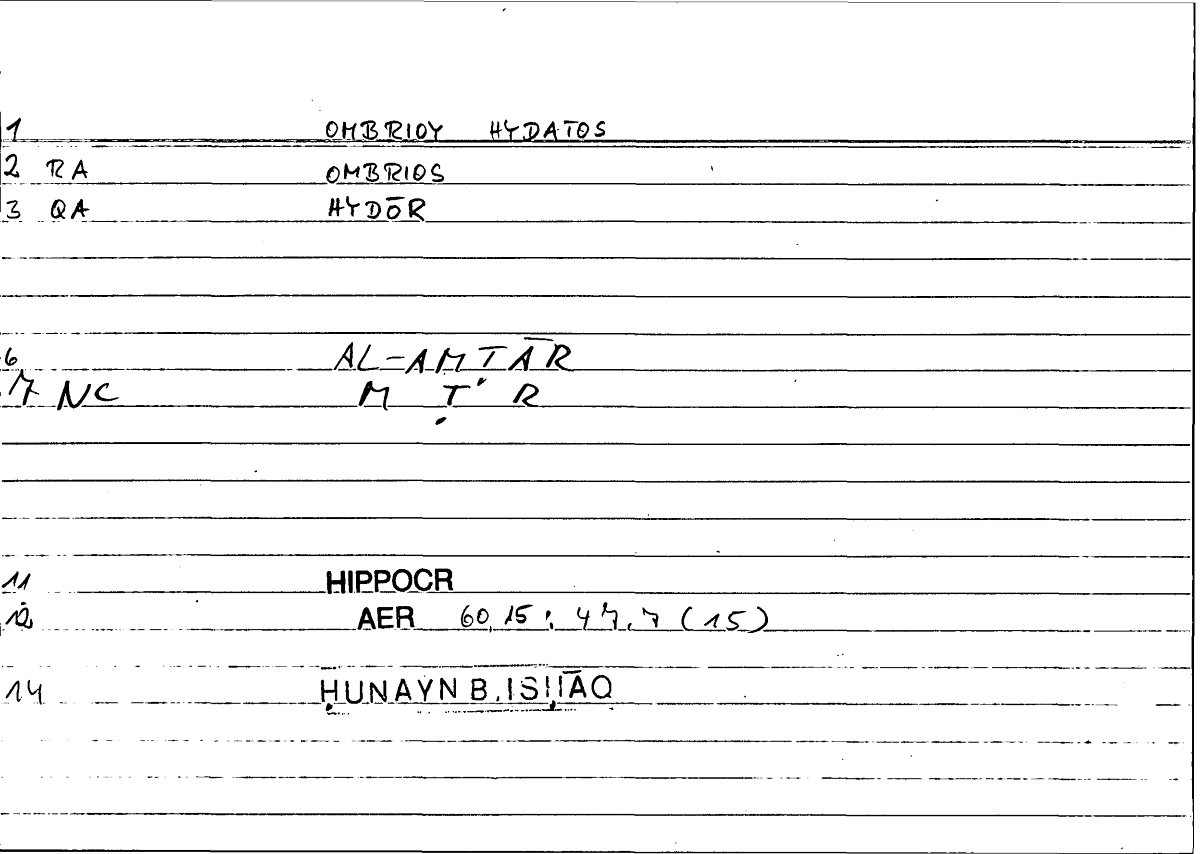 1 OMBRIOY HYDATOS
2 RA OMBRIOS
3 QA HYDŌR
6 AL-AMṬĀR
7 NC M Ṭ R
11 HIPPOCR
12 AER 60,15 : 47,7 (15)
14 ḤUNAYN B. ISḤĀQ